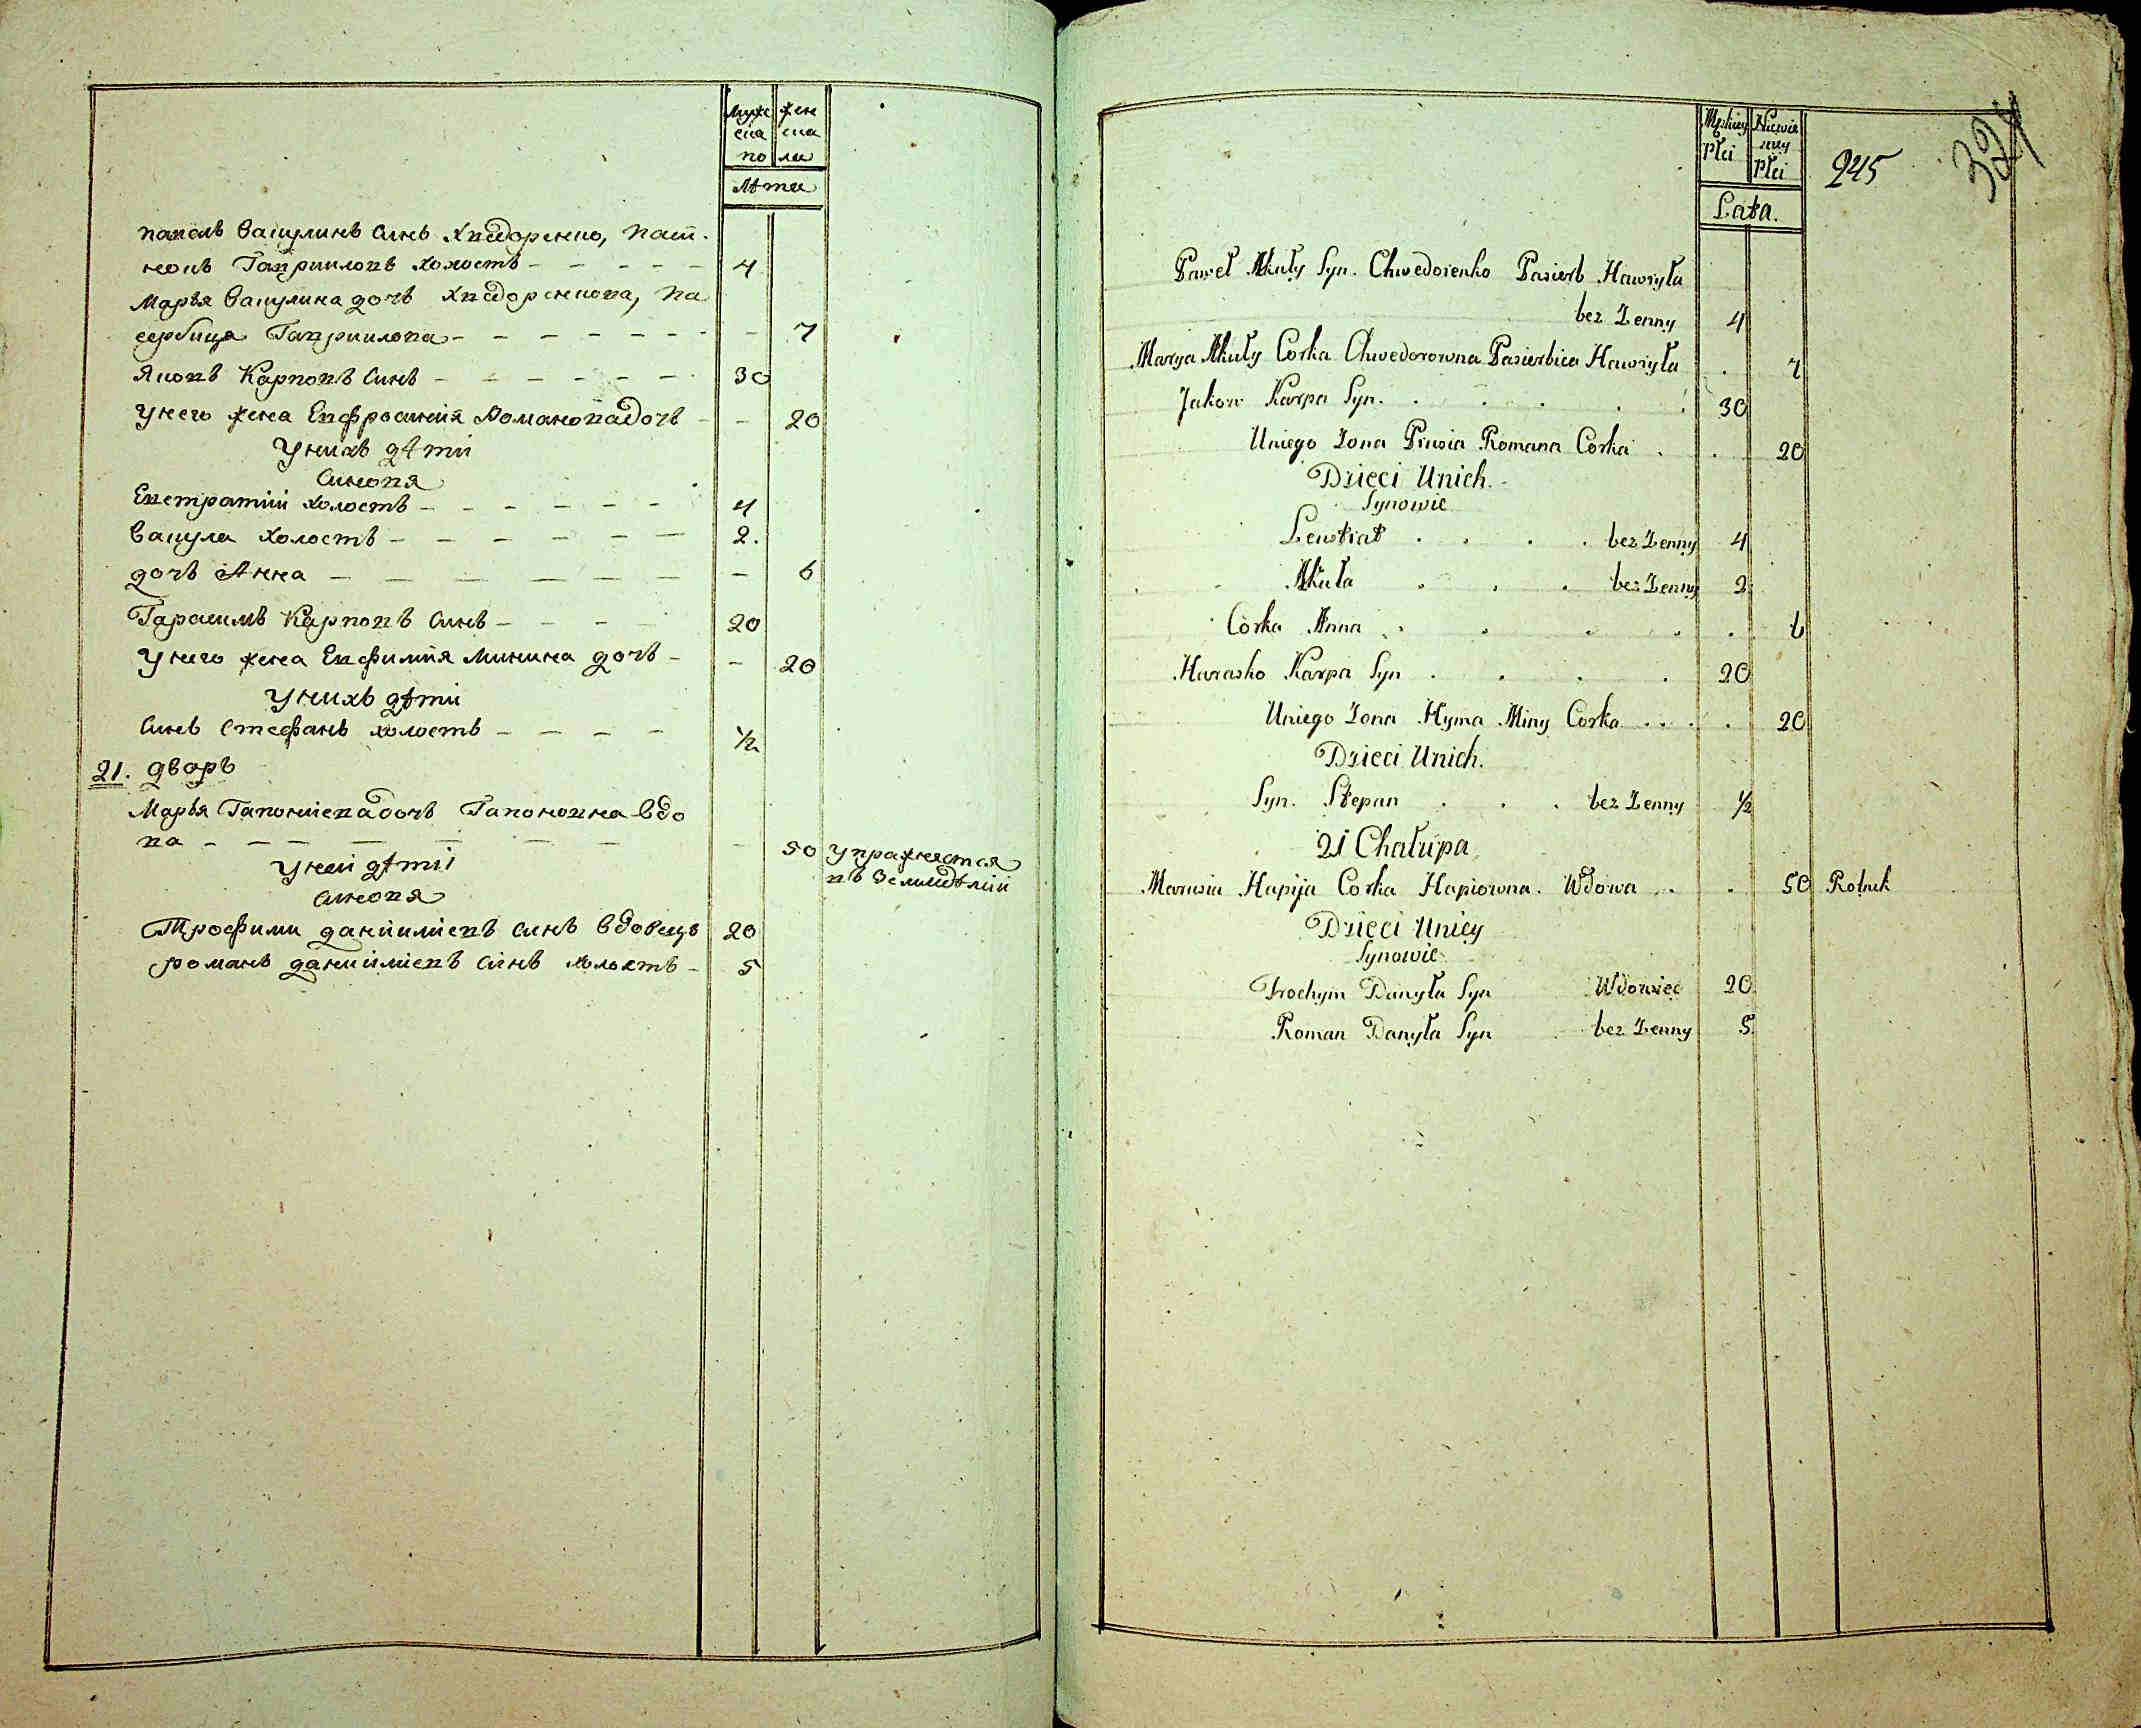 мужс жен
ска ска
по ла
лѣта
павелъ вакулинъ синъ хведоренко, пасин
нокъ Гавриловъ холостъ 4
Марья вакулина дочъ хведоренкова, па
сербица Гаврилова 7
Яковъ Карповъ синъ 30
у него жена Евфросинія Романова дочъ 20
у нихъ дѣти
синовя
Евстратій холостъ 4
вакула холостъ 2.
дочъ Анна 6
Гарасимъ Карповъ синъ 20
у него жена Евфимія Минина дочъ 20
у нихъ дѣти
синъ Стефанъ холостъ ½
21. дворъ
Марья Гапоніева дочъ Гапоновна вдо
ва 50 упражняется
въ земледѣліи
у неи дѣти
синовя
Трофимъ данииліевъ синъ вдовецъ 20
романъ данииліевъ синъ холостъ 5
Męskiey Niewie
Płci sciey
Płci
245
324
Lata.
Paweł Akuły Syn. Chwedorenko Pasierb Hawryła
bez Żenny 4
Marya Akuły Corka Chwedorowna Pasierbica Hawryła 7
Jakow Karpa Syn. 30
Uniego Żona Prusia Romana Corka 20
Dzieci Unich.
Synowie
Lewstrat bez Żenny 4
Akuła bez Żenny 2
Córka Anna 6
Harasko Karpa Syn 20
Uniego Żona Hyma Miny Corka 20
Dzieci Unich.
Syn. Stepan bez Żenny ½
21 Chałupa
Marusia Hapija Corka Hapiowna. Wdowa 50 Rolnik
Dzieci Unicy
Synowie
Trochym Danyła Syn Wdowiec 20
Roman Danyła Syn bez Żenny 5